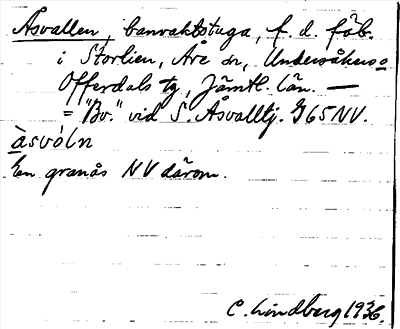 Åsvallen, banvaktstuga, f. d. fäb.
i Storlien, Åre sn, Undersåkers o
Offerdals tg, Jämtl. län. —
= "Bv." vid S. Åsvalltj. G65NV.
àsvóln
En granås NV därom.
C. Lindberg 1936.